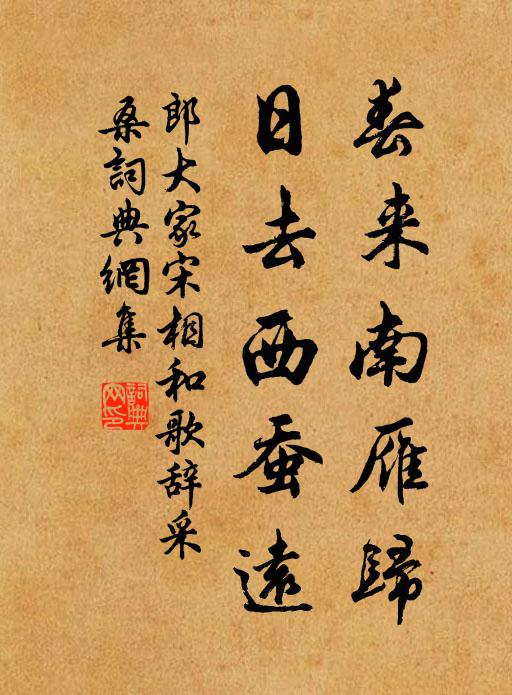 春来南雁歸
日去西蚕遠
郎大家宋相和歌辞采
桑詞典網集
詞典
网印